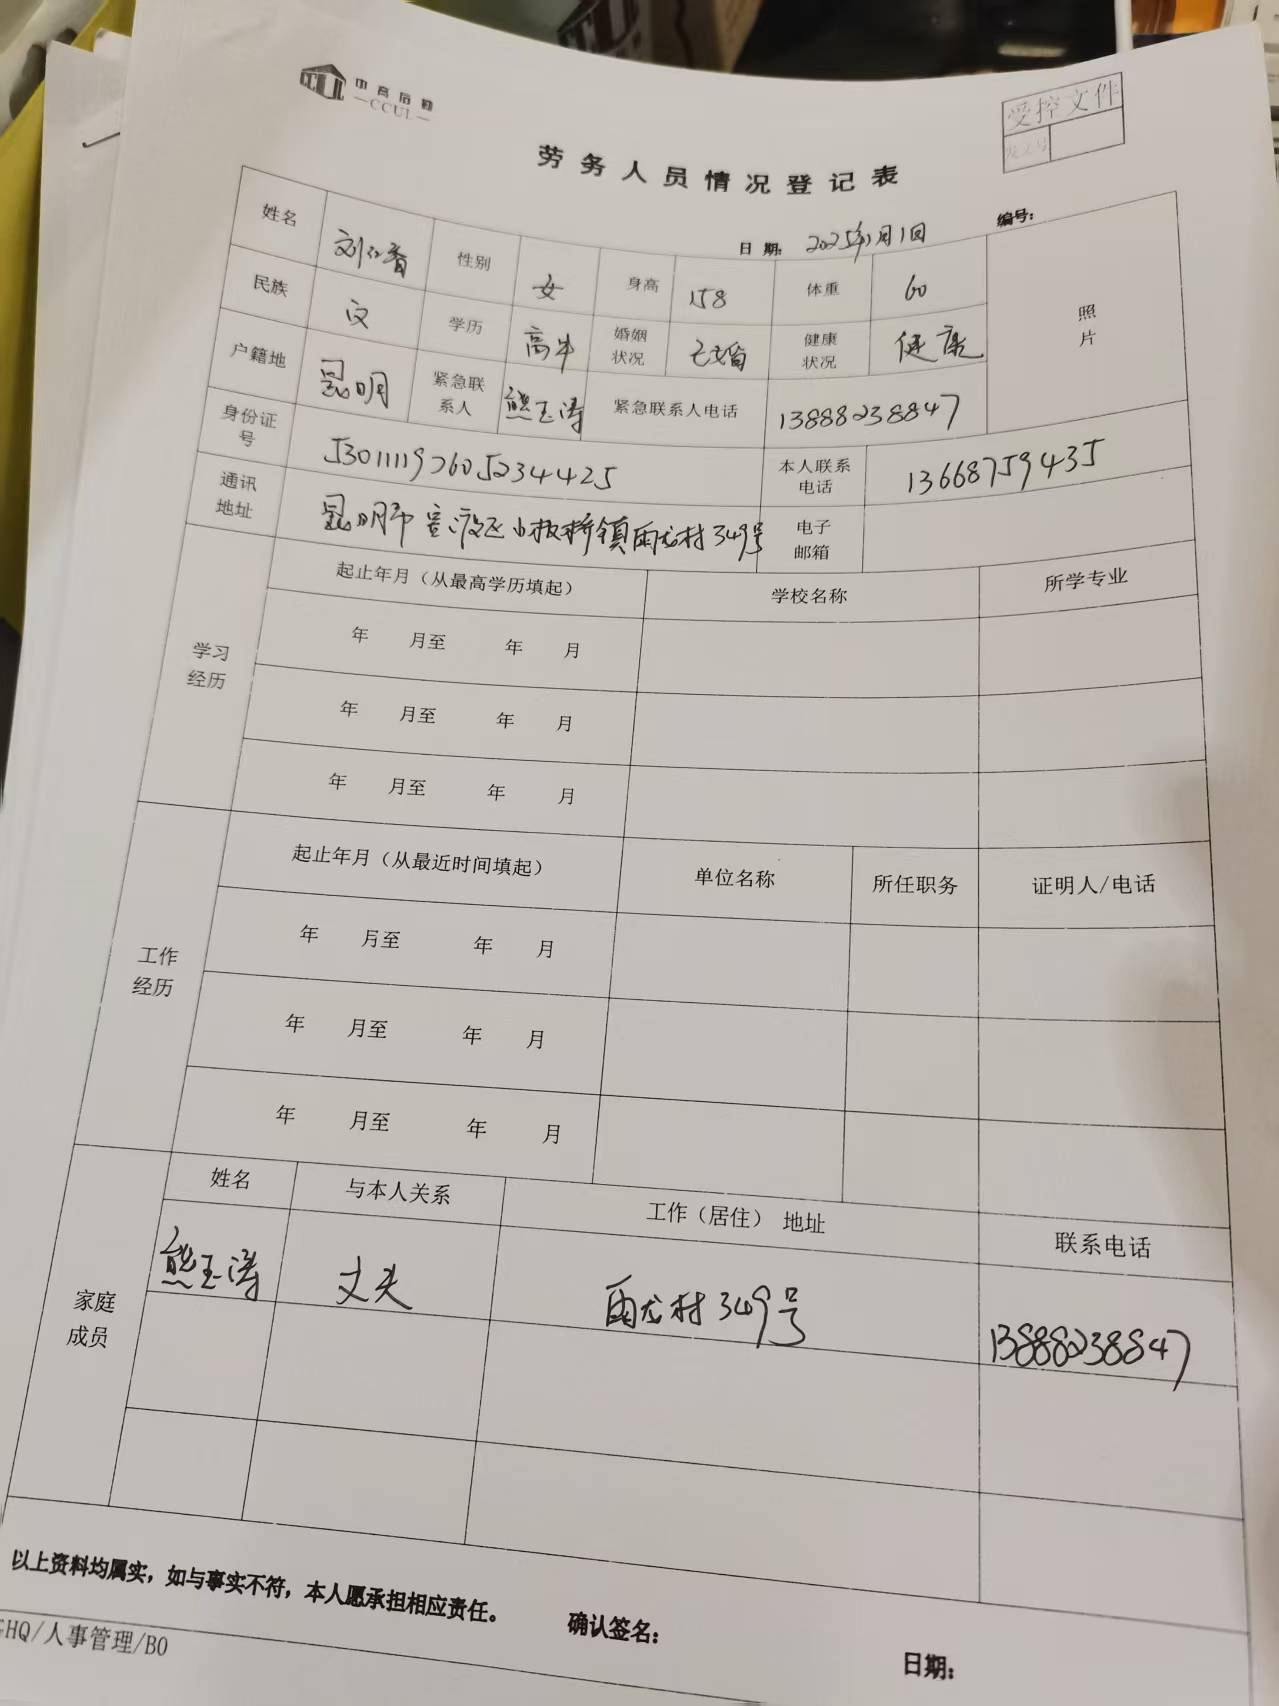 中高后勤
CCUL
受控文件
发文号
劳务人员情况登记表
日期: 2025年1月1日 编号:
姓名 刘仁香 性别 女 身高 158 体重 60 照片
民族 汉 学历 高中 婚姻状况 已婚 健康状况 健康
户籍地 昆明 紧急联系人 熊玉涛 紧急联系人电话 13888238847
身份证号 530111197605234425 本人联系电话 13668759435
通讯地址 昆明市官渡区小板桥镇雨龙村349号 电子邮箱
学习经历 起止年月（从最高学历填起） 学校名称 所学专业
年 月至 年 月
年 月至 年 月
年 月至 年 月
工作经历 起止年月（从最近时间填起） 单位名称 所任职务 证明人/电话
年 月至 年 月
年 月至 年 月
年 月至 年 月
家庭成员 姓名 与本人关系 工作（居住） 地址 联系电话
熊玉涛 丈夫 雨龙村349号 13888238847
以上资料均属实，如与事实不符，本人愿承担相应责任。 确认签名: 日期:
HQ/人事管理/B0